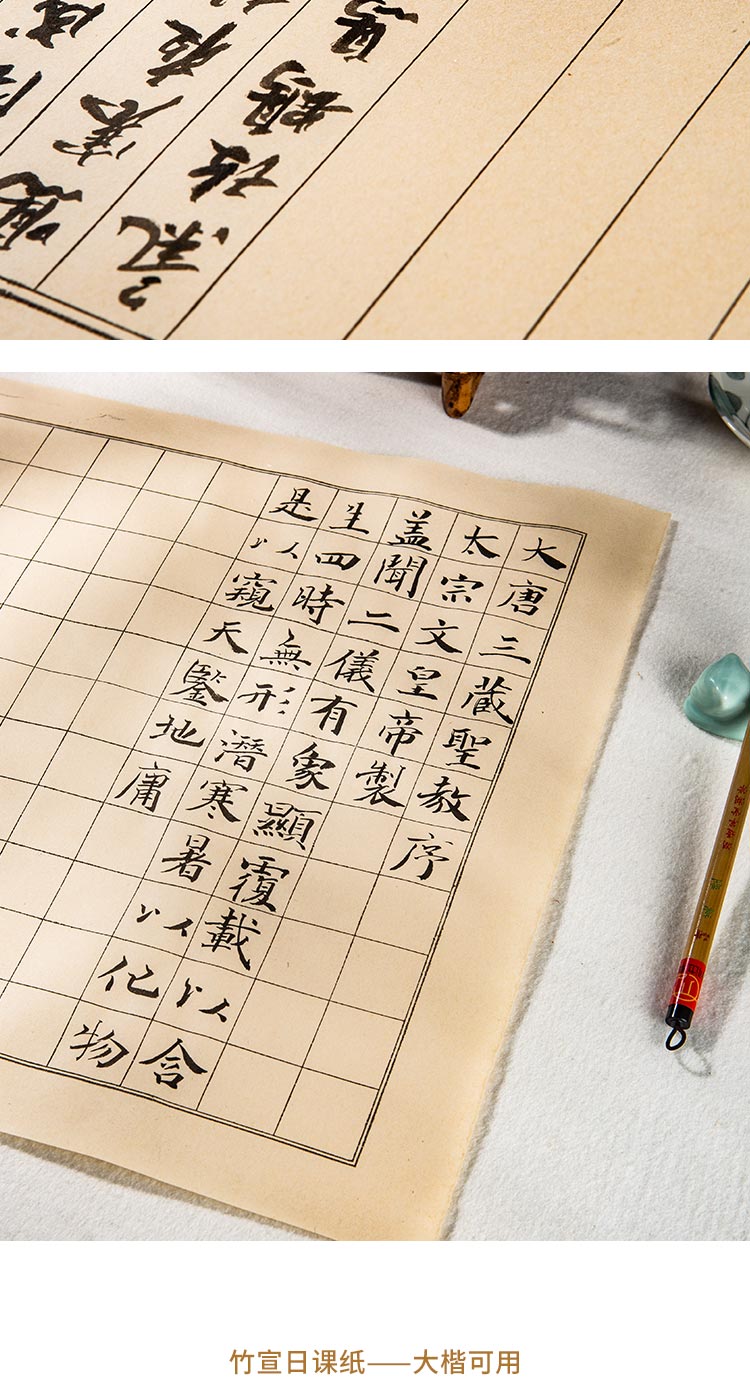 大唐三藏聖教序
太宗文皇帝製
盖聞二儀有象顯覆載以含
生四時無形潛寒暑以化物
是以窺天鑒地庸
竹宣日课纸——大楷可用